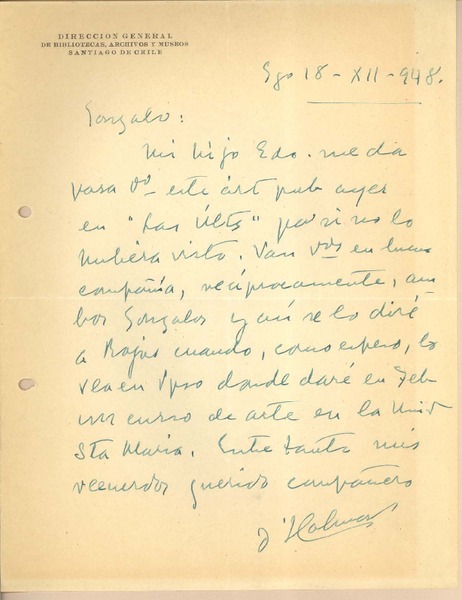 DIRECCION GENERAL
DE BIBLIOTECAS, ARCHIVOS Y MUSEOS
SANTIAGO DE CHILE
Sgo 18 - XII - 948.
Gonzalo:
Mi hijo Edo. me da
para Vd este art pub ayer
en "Las Ults" por si no lo
hubiera visto. Van Vds en buena
compañía, recíprocamente, am-
bos Gonzalos y así se lo diré
a Rojas cuando, como espero, lo
vea en Vpso donde daré en Feb
un curso de arte en la Univ
Sta María. Entre tanto mis
recuerdos querido compañero
D'Halmar